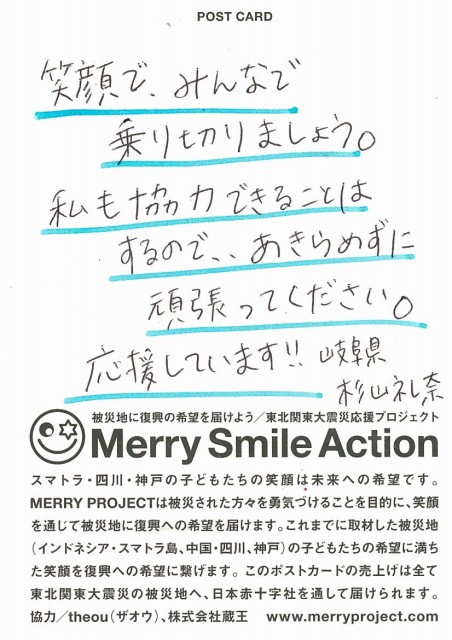 POST CARD
笑顔で、みんなで
乗り切りましょう。
私も協力できることは
するので、、あきらめずに
頑張ってください。
応援しています!! 岐阜県
杉山礼奈
被災地に復興の希望を届けよう／東北関東大震災応援プロジェクト
Merry Smile Action
スマトラ・四川・神戸の子どもたちの笑顔は未来への希望です。
MERRY PROJECTは被災された方々を勇気づけることを目的に、笑顔
を通じて被災地に復興への希望を届けます。これまでに取材した被災地
（インドネシア・スマトラ島、中国・四川、神戸）の子どもたちの希望に満ち
た笑顔を復興への希望に繋げます。このポストカードの売上げは全て
東北関東大震災の被災地へ、日本赤十字社を通して届けられます。
協力／theou（ザオウ）、株式会社蔵王 www.merryproject.com